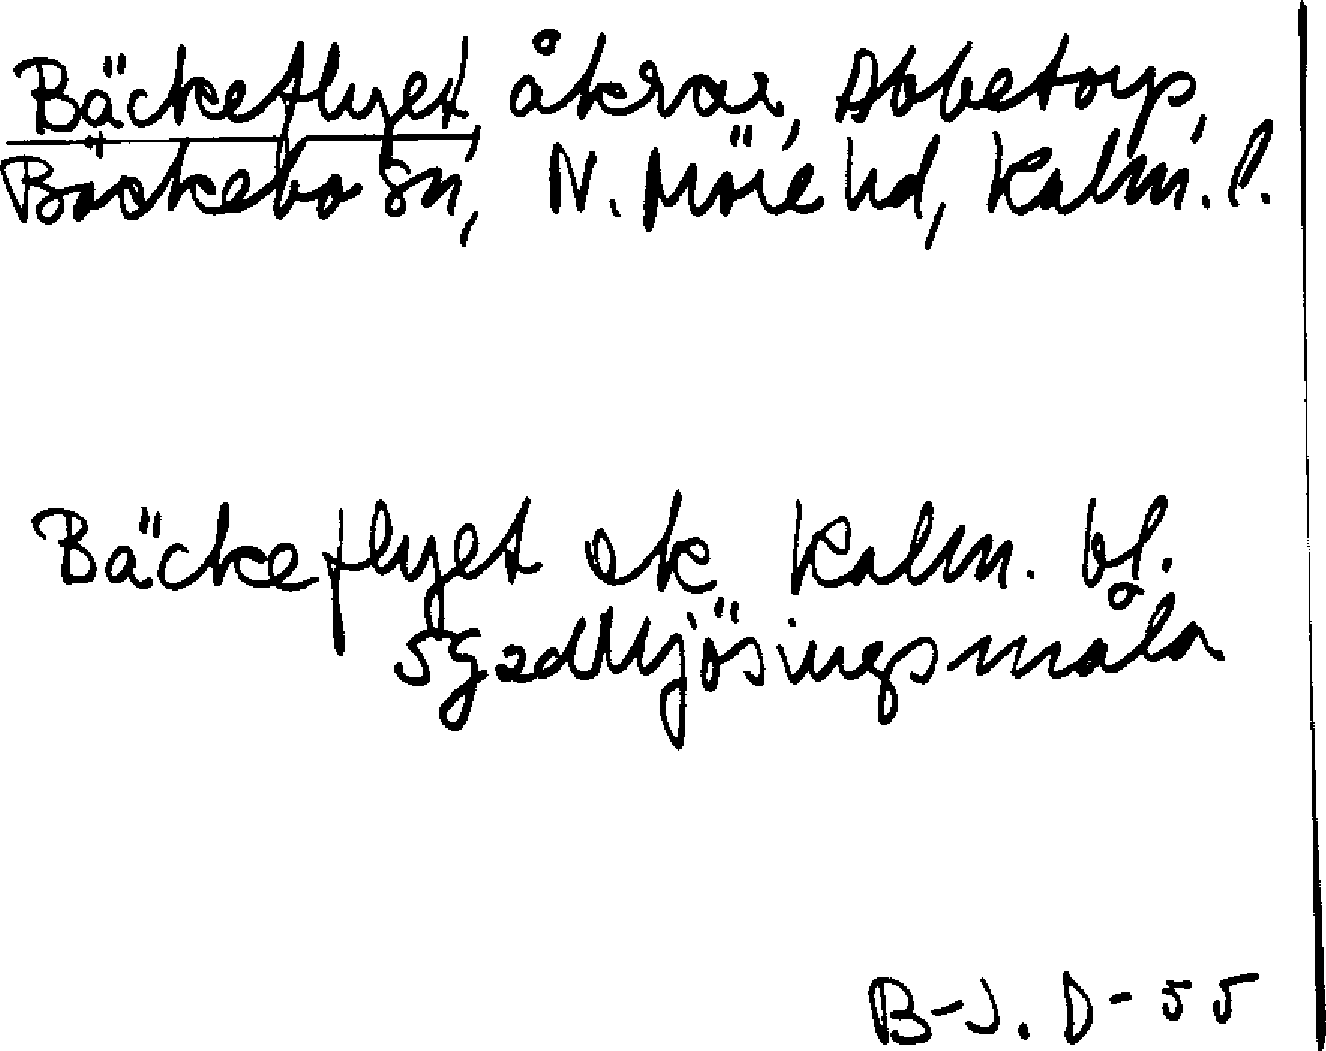 Bäckeflyet åkrar, Abbetorp,
Bäckebo Sn, N. Möre hd, Kalm. l.
Bäckeflyet ek Kalm. bl.
5G2d Mjösingsmåla
B-J. D-55